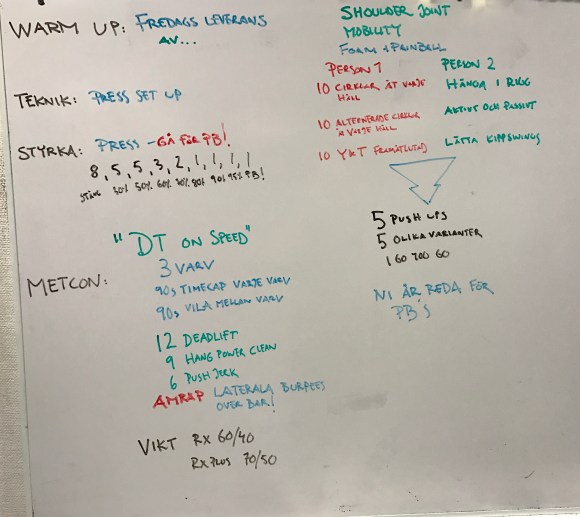 WARM UP: FREDAGS LEVERANS
AV...
TEKNIK: PRESS SET UP
STYRKA: PRESS - GÅ FÖR PB!
8, 5, 5, 3, 2, 1, 1, 1, 1
STÅNG 30% 50% 60% 70% 80% 90% 95% PB!
"DT ON SPEED"
METCON:
3 VARV
90s TIMECAP VARJE VARV
90s VILA MELLAN VARV
12 DEADLIFT
9 HANG POWER CLEAN
6 PUSH JERK
AMRAP LATERALA BURPEES
OVER BAR!
VIKT RX 60/40
RX PLUS 70/50
SHOULDER JOINT
MOBILITY
FOAM &
PERSON 1
10 CIRKLAR ÅT VARJE
HÅLL
10 ALTERNERADE CIRKLAR
Å VARJE HÅLL
10 YWT FRAMÅTLUTAD
PERSON 2
HÄNGA I RIGG
AKTIVT OCH PASSIVT
LÄTTA KIPPSWINGS
5 PUSH UPS
5 OLIKA VARIANTER
1 GO YOU GO
NI ÄR REDA FÖR
PB'S